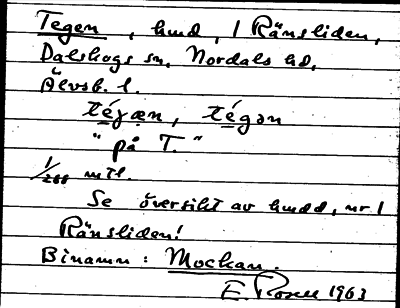 Tegen, hmd, 1 Ränsliden,
Dalskogs sn, Nordals hd,
Älvsb. l.
téjæn, tégən
"på T."
1/288 mtl.
Se översikt av hmdd, nr 1
Ränsliden!
Binamn: Mockan.
E. Rosell 1963